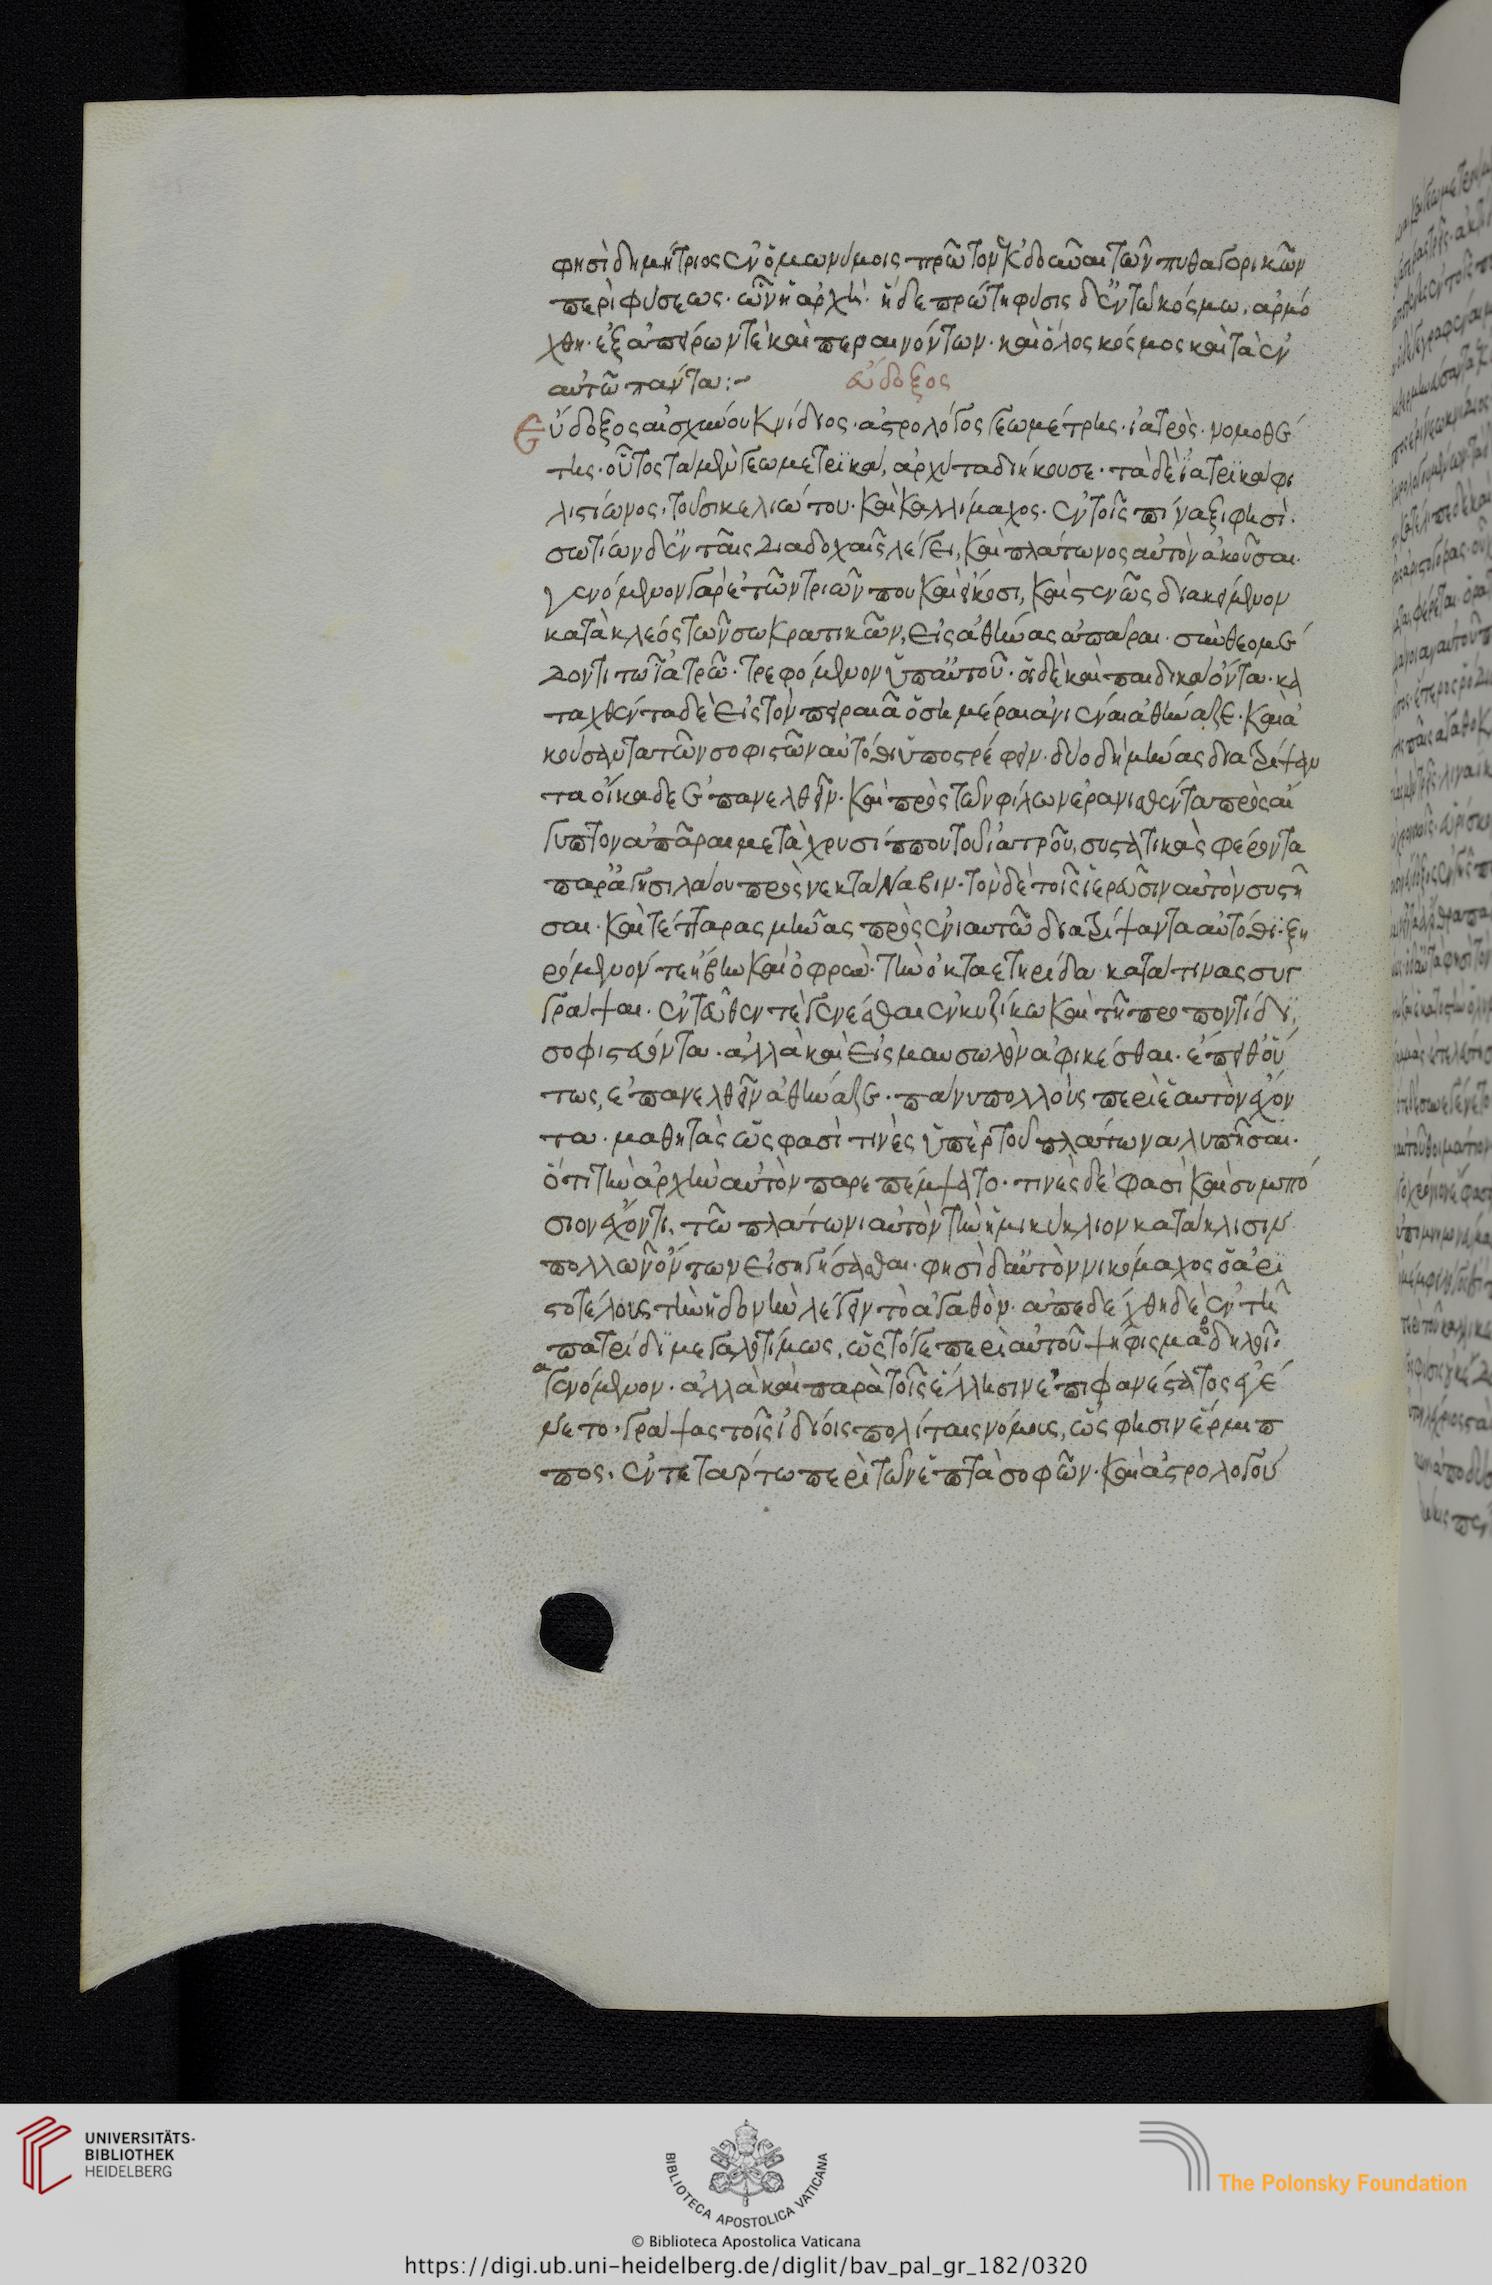 φησὶ δημήτριος ἐν ὁμωνύμοις πρῶτον ἐκδοῦναι τῶν πυθαγορικῶν
περὶ φύσεως· ὧν ἡ ἀρχή· ἥδε πρώτη φύσις δ' ἐν τῶ κόσμω. ἁρμό
χθη· ἐξ ἀπείρων τὲ καὶ περαινόντων· καὶ ὅλος κόσμος καὶ τὰ ἐν
αυτῶ πάντα:~ εὔδοξος
Εὔδοξος αἰσχίνου κνίδιος· αστρολόγος γεωμέτρης· ἰατρὸς· νομοθέ
της· οὗτος τὰ μὲν γεωμετρϊκὰ, αρχύτα διήκουσε· τὰ δὲ ϊατρϊκὰ φι
λιστίωνος, τοῦ σικελιώτου· καὶ καλλίμαχος· ἐν τοῖς πίναξι φησὶ·
σωτίων δ' ἐν ταῖς διαδοχαῖς λέγει, καὶ πλάτωνος αὐτὸν ἀκοῦσαι·
γενόμενον γὰρ ἐτῶν τριῶν που καὶ εἴκοσι, καὶ στενῶς διακείμενον
κατὰ κλέος τῶν σωκρατικῶν, εἰς ἀθήνας ἀπάραι· σὺν θεομέ
δοντι τῶ ϊατρῶ· τρεφόμενον ὑπ' αὐτοῦ· οἱ δὲ καὶ παιδικὰ ὄντα· κα
ταχθέντα δὲ εἰς τὸν πειραιᾶ ὁσημέραι ἀνιέναι ἀθήναζε· καὶ ἀ
κούσαντα τῶν σοφιστῶν αὐτόθι ὑποστρέφειν· δύο δὴ μῆνας διατρίψαν
τα οἴκαδε ἐπανελθεῖν· καὶ πρὸς τῶν φίλων ἐρανισθέντα πρὸς αἴ
γυπτον ἀπᾶραι μετὰ χρυσίππου τοῦ ἰατροῦ, συστατικὰς φέροντα
παρ' ἀγησιλάου πρὸς νεκτάναβιν· τὸν δὲ τοῖς ἱερεῦσιν αὐτὸν συστῆ
σαι· καὶ τέτταρας μῆνας πρὸς ἐνιαυτῶ διατρίψαντα αὐτόθι· ξυ
ρόμενόν τε ἥβην καὶ ὀφρῦν· τὴν ὀκταετηρίδα κατά τινας συγ
γράψαι· ἐντεῦθέν τὲ γενέσθαι ἐν κυζίκω καὶ τῆ προποντίδϊ,
σοφιστεύοντα· ἀλλὰ καὶ εἰς μαυσωλὸν ἀφικέσθαι· ἔπειθ' οὕ
τως, ἐπανελθεῖν ἀθήναζε· πάνυ πολλοὺς περὶ ἑαυτὸν ἔχον
τα· μαθητὰς ὥς φασὶ τινὲς ὑπὲρ τοῦ πλάτωνα λυπῆσαι·
ὅτι τὴν ἀρχὴν αὐτὸν παρεπέμψατο· τινὲς δέ φασὶ καὶ συμπό
σιον ἔχοντι, τῶ πλάτωνι αὐτὸν τὴν ἡμικύκλιον κατάκλισιν
πολλῶν ὄντων εἰσηγήσασθαι· φησὶ δ' αὐτὸν νικόμαχος ὁ ἀρϊ
στοτέλους τὴν ἡδονὴν λέγειν τὸ ἀγαθὸν· ἀπεδέχθη δὲ ἐν τῆ
πατρίδϊ μεγαλοτίμως, ὥς τό γε περὶ αὐτοῦ ψήφισμα δηλοῖ·
γενόμενον· ἀλλὰ καὶ παρὰ τοῖς ἕλλησιν ἐπιφανέστατος ἐγέ
νετο· γράψας τοῖς ἰδίοις πολίταις νόμους, ὥς φησιν ἕρμιπ
πος, ἐν τετάρτω περὶ τῶν ἑπτὰ σοφῶν· καὶ ἀστρολογού
UNIVERSITÄTS-
BIBLIOTHEK
HEIDELBERG
BIBLIOTECA APOSTOLICA VATICANA
The Polonsky Foundation
© Biblioteca Apostolica Vaticana
https://digi.ub.uni-heidelberg.de/diglit/bav_pal_gr_182/0320